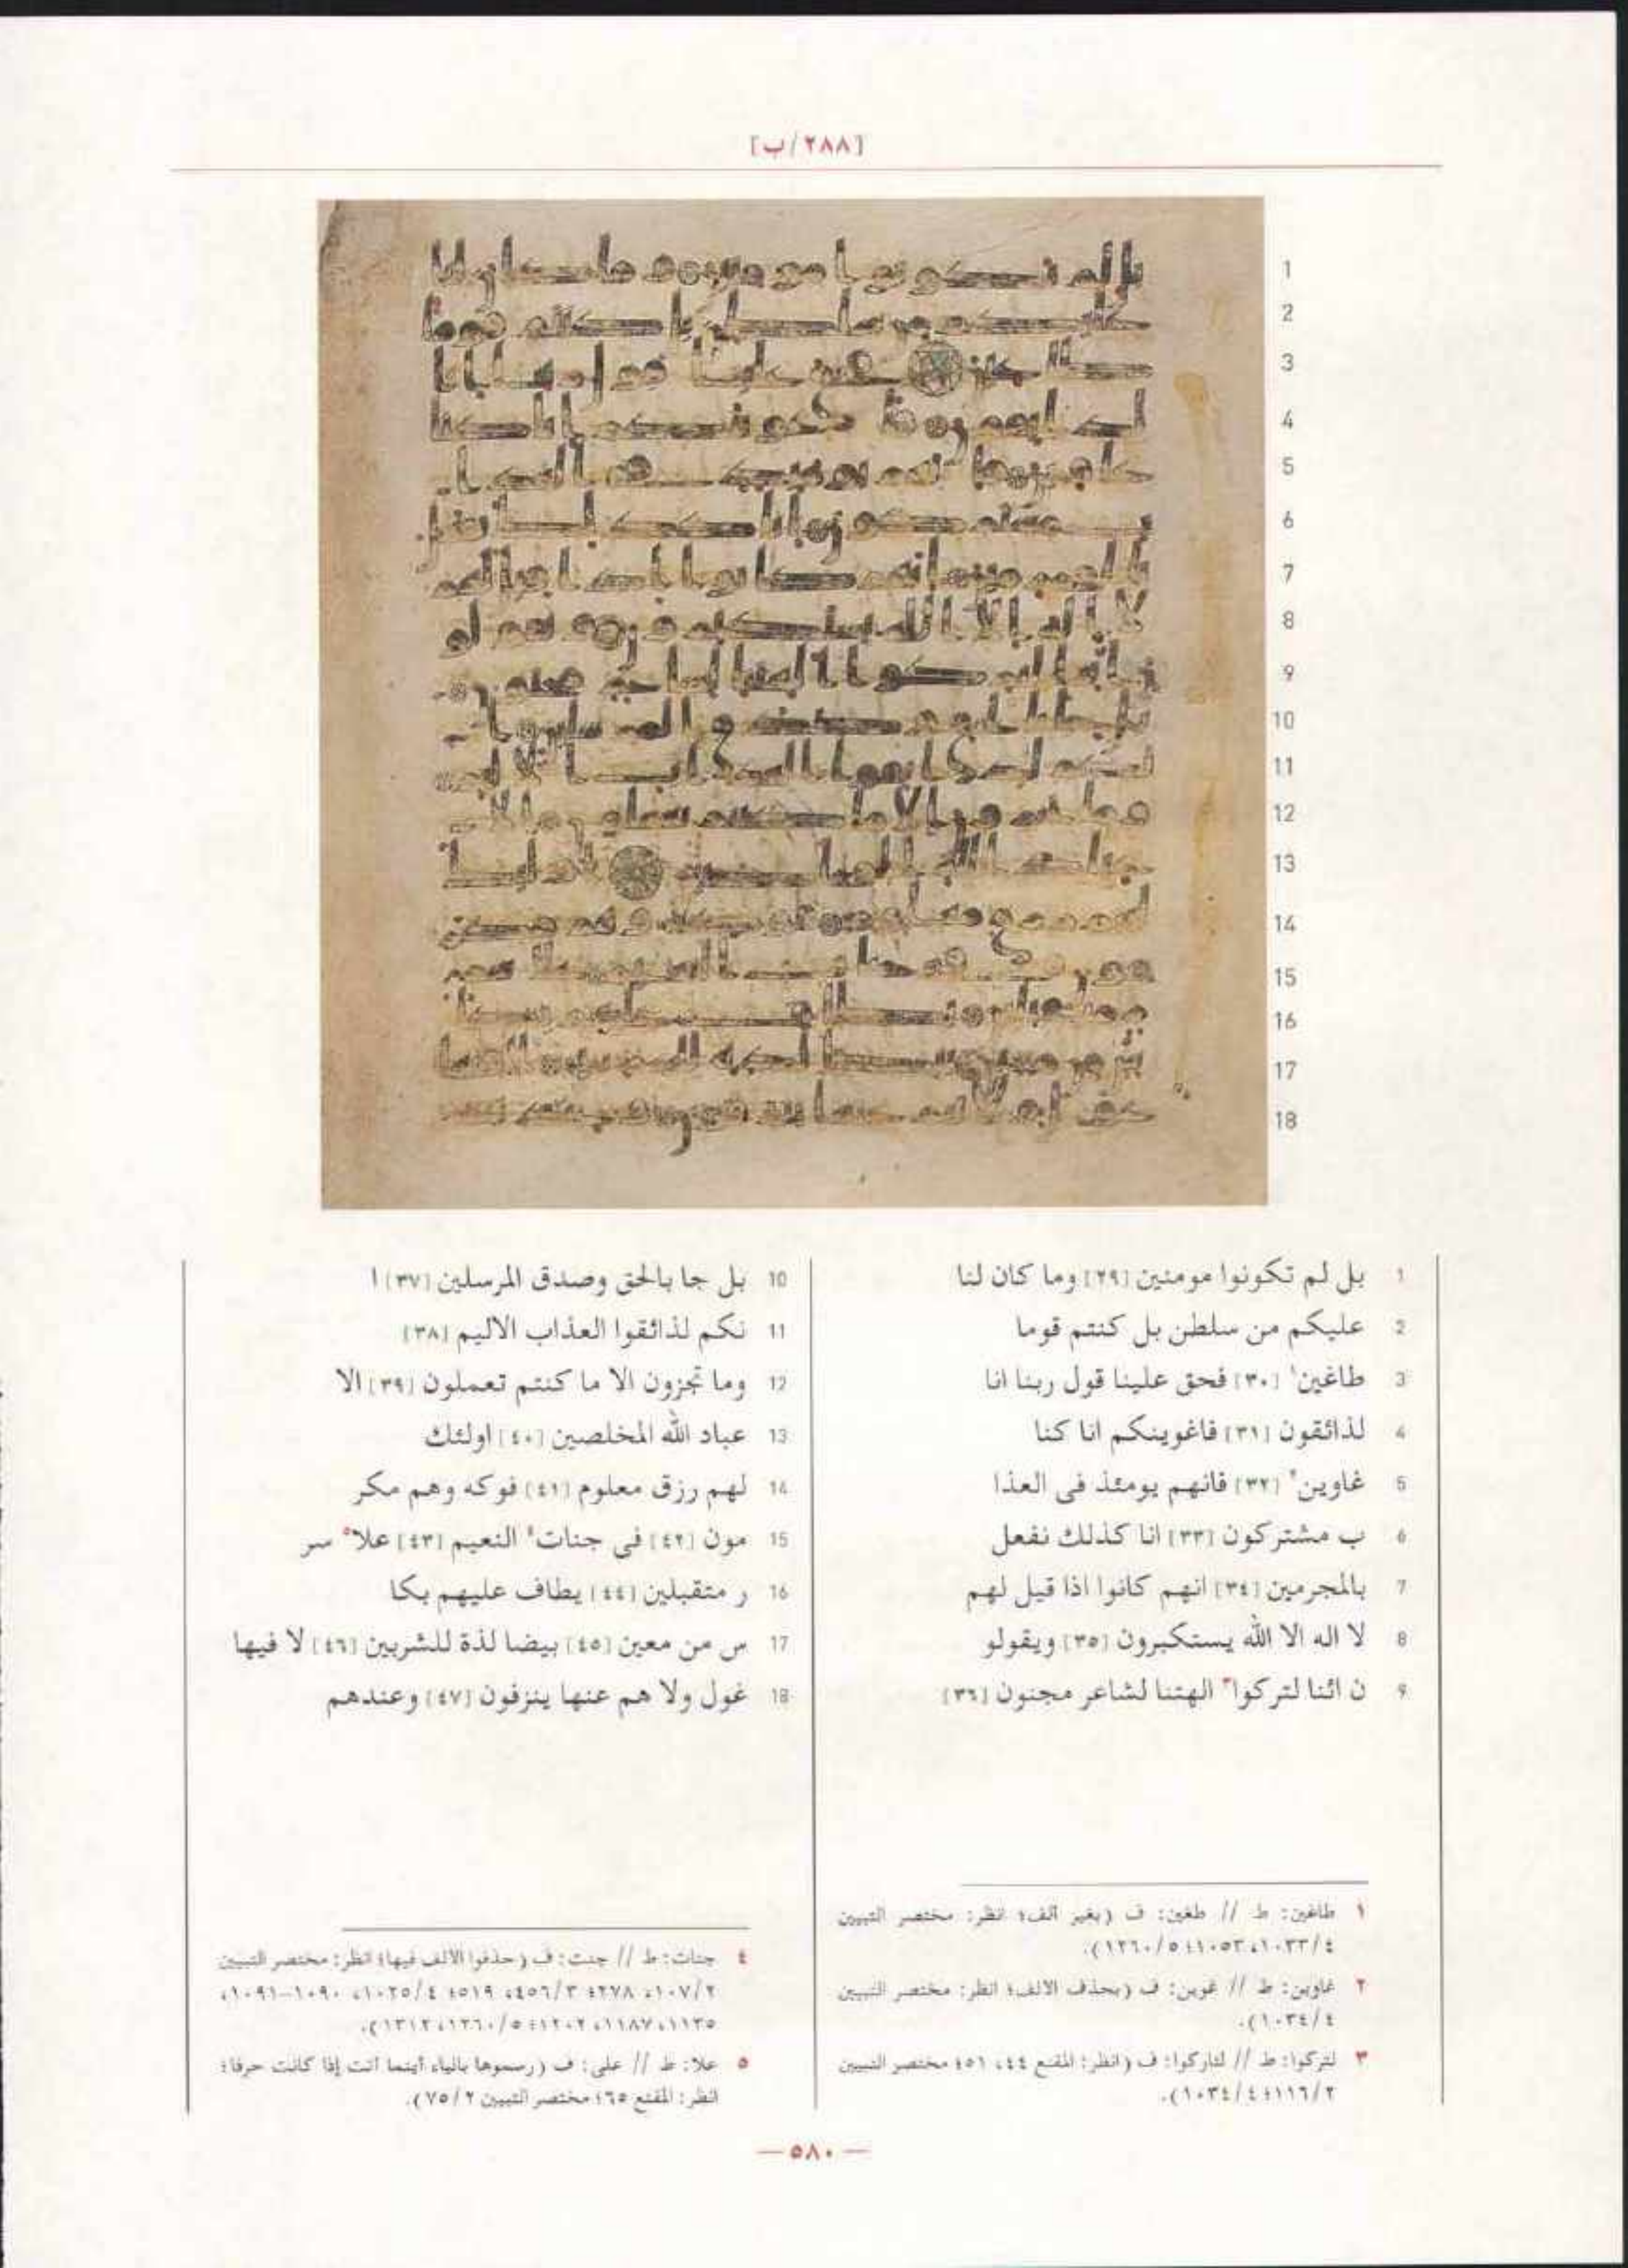 [٢٨٨/ب]
1 بل لم تكونوا مومنين [٢٩] وما كان لنا
2 عليكم من سلطن بل كنتم قوما
3 طاغين١ [٣٠] فحق علينا قول ربنا انا
4 لذائقون [٣١] فاغوينكم انا كنا
5 غاوين٢ [٣٢] فانهم يومئذ فى العذا
6 ب مشتركون [٣٣] انا كذلك نفعل
7 بالمجرمين [٣٤] انهم كانوا اذا قيل لهم
8 لا اله الا الله يستكبرون [٣٥] ويقولو
9 ن ائنا لتركوا٣ الهتنا لشاعر مجنون [٣٦]
10 بل جا بالحق وصدق المرسلين [٣٧] ا
11 نكم لذائقوا العذاب الاليم [٣٨]
12 وما تجزون الا ما كنتم تعملون [٣٩] الا
13 عباد الله المخلصين [٤٠] اولئك
14 لهم رزق معلوم [٤١] فوكه وهم مكر
15 مون [٤٢] فى جنات٤ النعيم [٤٣] علا٥ سر
16 ر متقبلين [٤٤] يطاف عليهم بكا
17 س من معين [٤٥] بيضا لذة للشربين [٤٦] لا فيها
18 غول ولا هم عنها ينزفون [٤٧] وعندهم
١ طاغين: ط // طغين: ف (بغير ألف؛ انظر: مختصر التبيين
٤/١٠٣٣، ١٠٥٣؛ ٥/١٢٦٠).
٢ غاوين: ط // غوين: ف (بحذف الالف؛ انظر: مختصر التبيين
٤/١٠٣٤).
٣ لتركوا: ط // لتاركوا: ف (انظر: المقنع ٤٤، ٥١؛ مختصر التبيين
٢/١١٦؛ ٤/١٠٣٤).
٤ جنات: ط // جنت: ف (حذفوا الالف فيها؛ انظر: مختصر التبيين
٢/١٠٧، ٢٧٨؛ ٣/٤٥٦، ٥١٩؛ ٤/١٠٢٥، ١٠٩٠-١٠٩١،
١١٣٥، ١١٨٧، ١٢٠٢؛ ٥/١٢٦٠، ١٣١٢).
٥ علا: ط // على: ف (رسموها بالياء أينما أتت إذا كانت حرفا؛
انظر: المقنع ٦٥؛ مختصر التبيين ٢/٧٥).
— ٥٨٠ —